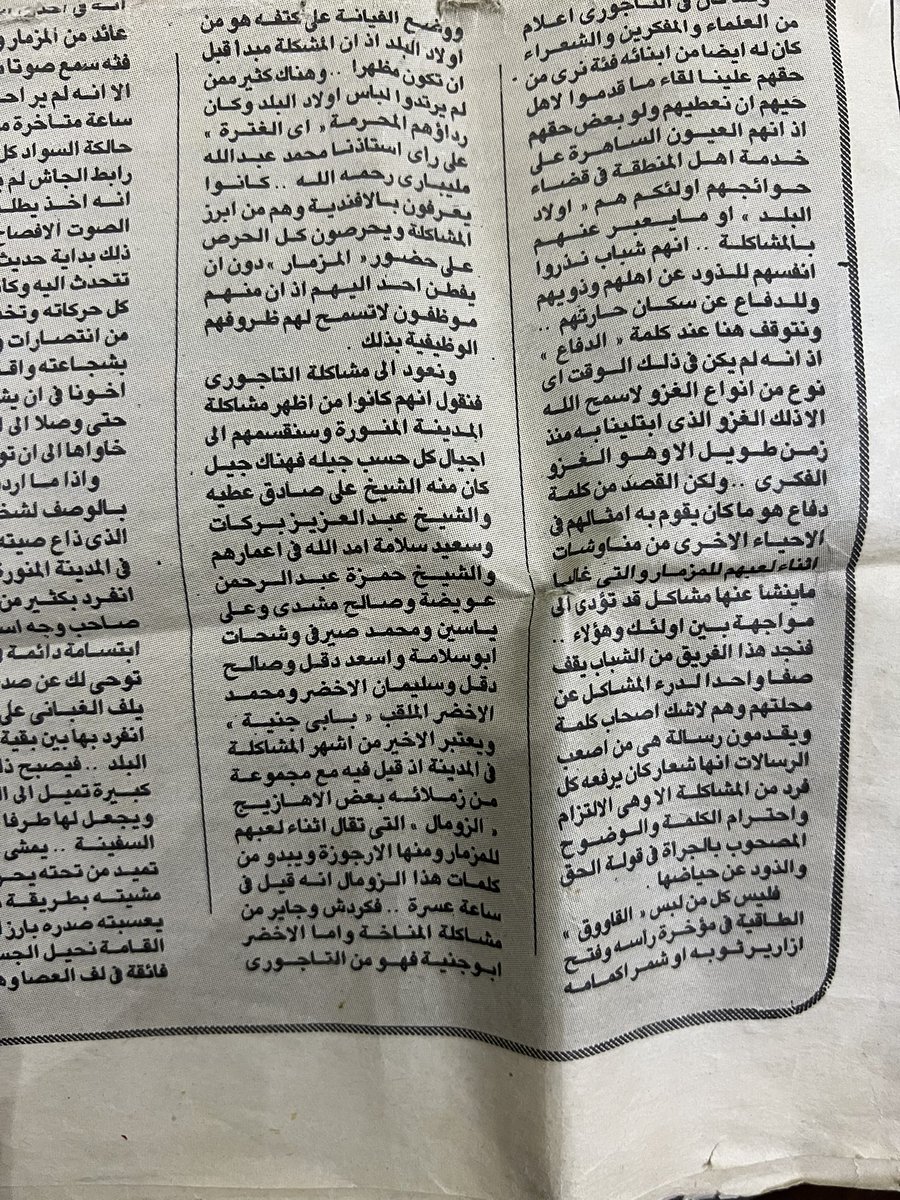 من العلماء والمفكرين والشعراء
كان له ايضا من ابنائه فئة نرى من
حقهم علينا لقاء ما قدموا لاهل
حيهم ان نعطيهم ولو بعض حقهم
اذ انهم العيون الساهرة على
خدمة اهل المنطقة فى قضاء
حوائجهم اولئكم هم « اولاد
البلد » او مايعبر عنهم
بالمشاكلة .. انهم شباب نذروا
انفسهم للذود عن اهلهم وذويهم
وللدفاع عن سكان حارتهم ..
ونتوقف هنا عند كلمة « الدفاع »
اذ انه لم يكن فى ذلك الوقت اى
نوع من انواع الغزو لاسمح الله
الا ذلك الغزو الذى ابتلينا به منذ
زمن طويل الا وهو الغزو
الفكرى .. ولكن القصد من كلمة
دفاع هو ما كان يقوم به امثالهم فى
الاحياء الاخرى من مناوشات
اثناء لعبهم للمزمار والتى غالبا
ماينشا عنها مشاكل قد تؤدى الى
مواجهة بين اولئك وهؤلاء ..
فنجد هذا الفريق من الشباب يقف
صفا واحدا لدرء المشاكل عن
محلتهم وهم لاشك اصحاب كلمة
ويقدمون رسالة هى من اصعب
الرسالات انها شعار كان يرفعه كل
فرد من المشاكلة الا وهى الالتزام
واحترام الكلمة والوضوح
المصحوب بالجراة فى قولة الحق
والذود عن حياضها
فليس كل من لبس « القاووق »
الطاقية فى مؤخرة راسه وفتح
ازارير ثوبه او شمر اكمامه
ووضع الغبانة على كتفه هو من
اولاد البلد اذ ان المشكلة مبدا قبل
ان تكون مظهرا .. وهناك كثير ممن
لم يرتدوا لباس اولاد البلد وكان
رداؤهم المحرمة « اى الغترة »
على راى استاذنا محمد عبدالله
مليبارى رحمه الله .. كانوا
يعرفون بالافندية وهم من ابرز
المشاكلة ويحرصون كل الحرص
على حضور « المزمار » دون ان
يفطن احد اليهم اذ ان منهم
موظفون لاتسمح لهم ظروفهم
الوظيفية بذلك
ونعود الى مشاكلة التاجورى
فنقول انهم كانوا من اظهر مشاكلة
المدينة المنورة وسنقسمهم الى
اجيال كل حسب جيله فهناك جيل
كان منه الشيخ على صادق عطيه
والشيخ عبدالعزيز بركات
وسعيد سلامة امد الله فى اعمارهم
والشيخ حمزة عبدالرحمن
عويضة وصالح مشدى وعلى
ياسين ومحمد صيرفى وشحات
ابوسلامة واسعد دقل وصالح
دقل وسليمان الاخضر ومحمد
الاخضر الملقب « بابى جنية »
ويعتبر الاخير من اشهر المشاكلة
فى المدينة اذ قيل فيه مع مجموعة
من زملائه بعض الاهازيج
« الزومال » التى تقال اثناء لعبهم
للمزمار ومنها الارجوزة ويبدو من
كلمات هذا الزومال انه قيل فى
ساعة عسرة .. فكردش وجابر من
مشاكلة المناخة واما الاخضر
ابوجنية فهو من التاجورى
عائد من المزمار
فثه سمع صوتا
الا انه لم ير
ساعة متاخرة
حالكة السواد
رابط الجاش لم
انه اخذ
الصوت الافصاح
ذلك بداية حديث
تتحدث اليه
كل حركاته
من انتصارات
بشجاعته
اخونا فى ان
حتى وصلا الى
خاواها الى ان
واذا ما
بالوصف
الذى ذاع صيته
فى المدينة المنورة
انفرد بكثير من
صاحب وجه
ابتسامة دائمة
توحى لك عن
يلف الغبانى على
انفرد بها بين بقية
البلد .. فيصبح
كبيرة تميل الى
ويجعل لها طرفا
السفينة .. يمشى
تميد من تحته
مشيته بطريقة
يعسبته صدره بارز
القامة نحيل
فائقة فى لف العصا